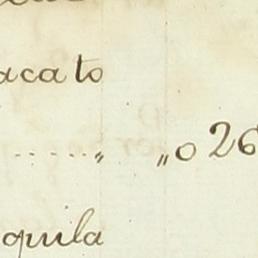 acato
......„ „o 26
quila